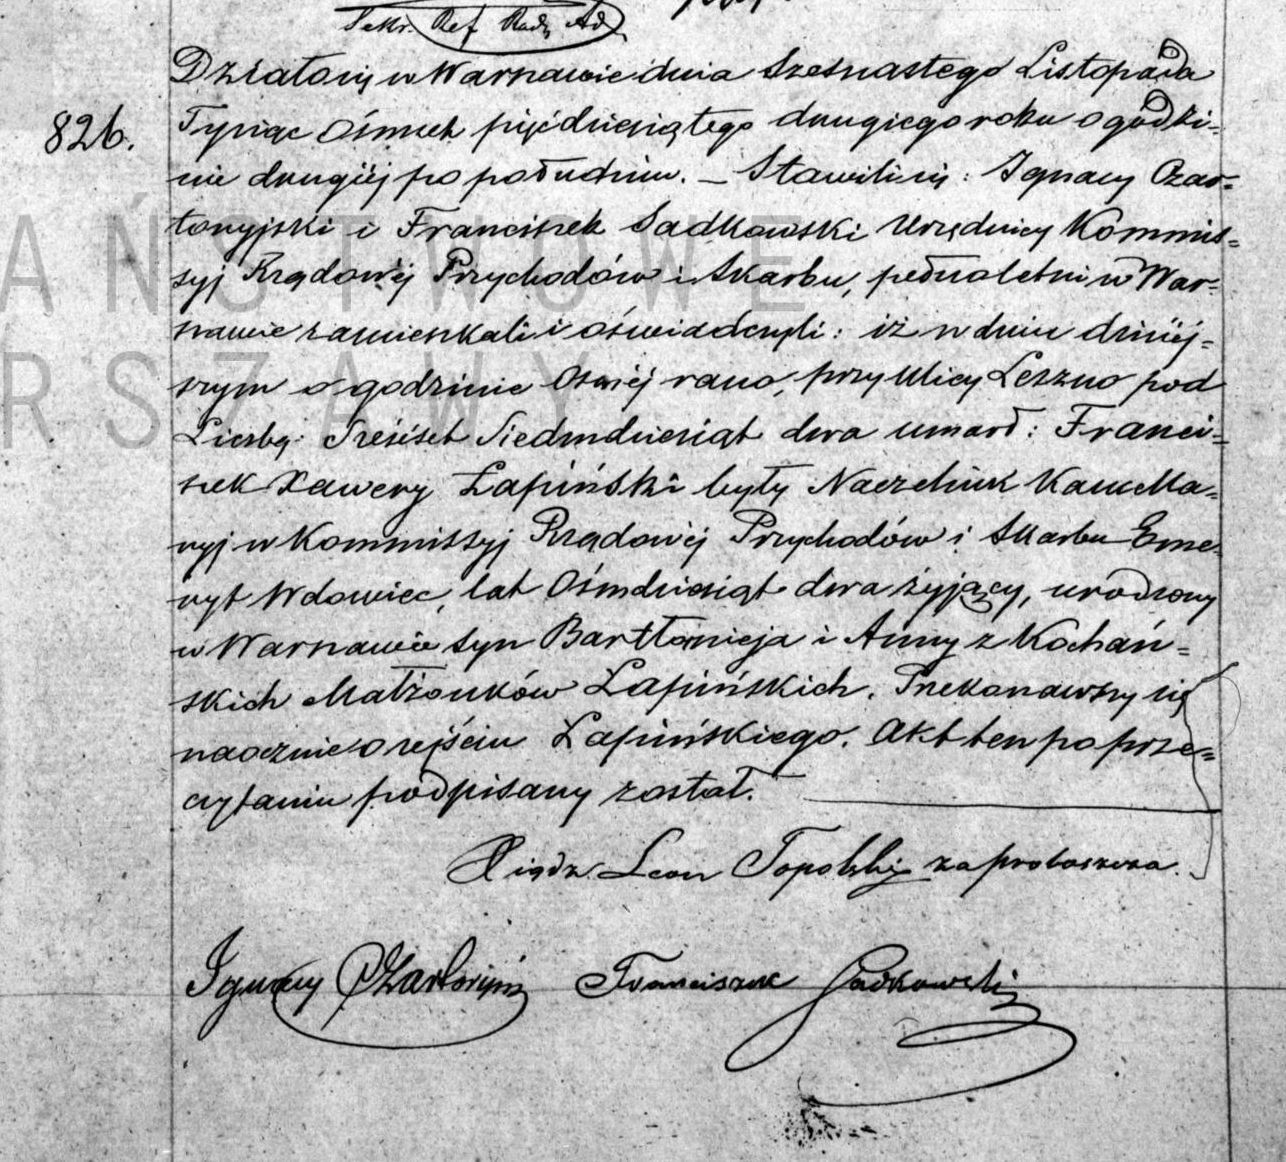 Sekr. Ref Rady Ad
Działo się w Warszawie dnia Szesnastego Listopada
826.
Tysiąc Ośmset pięćdziesiątego drugiego roku o godzi=
nie drugiéj po południu. – Stawili się: Ignacy Czar=
toryjski i Franciszek Sadkowski Urzędnicy Kommis=
syj Rządowéj Przychodów i Skarbu, pełnoletni w War=
szawie zamieszkali i oświadczyli: iż w dniu dzisiej=
szym o godzinie Osméj rano, przy Ulicy Leszno pod
Liczbą: Sześćset Siedmdziesiąt dwa umarł: Franci=
szek Xawery Łapiński były Naczelnik Kancella=
ryj w Kommissyj Rządowéj Przychodów i Skarbu Eme=
ryt Wdowiec, lat Ośmdziesiąt dwa żyjący, urodzony
w Warszawie syn Bartłomieja i Anny z Kochań=
skich Małżonków Łapińskich. Przekonawszy się
naocznie o zejściu Łapińskiego. Akt ten po prze=
czytaniu podpisany został.
Xiądz Leon Topolski za proboszcza.
Ignacy Czartoryjski Franciszek Sadkowski
AŃSTWOWE
RSZAWY